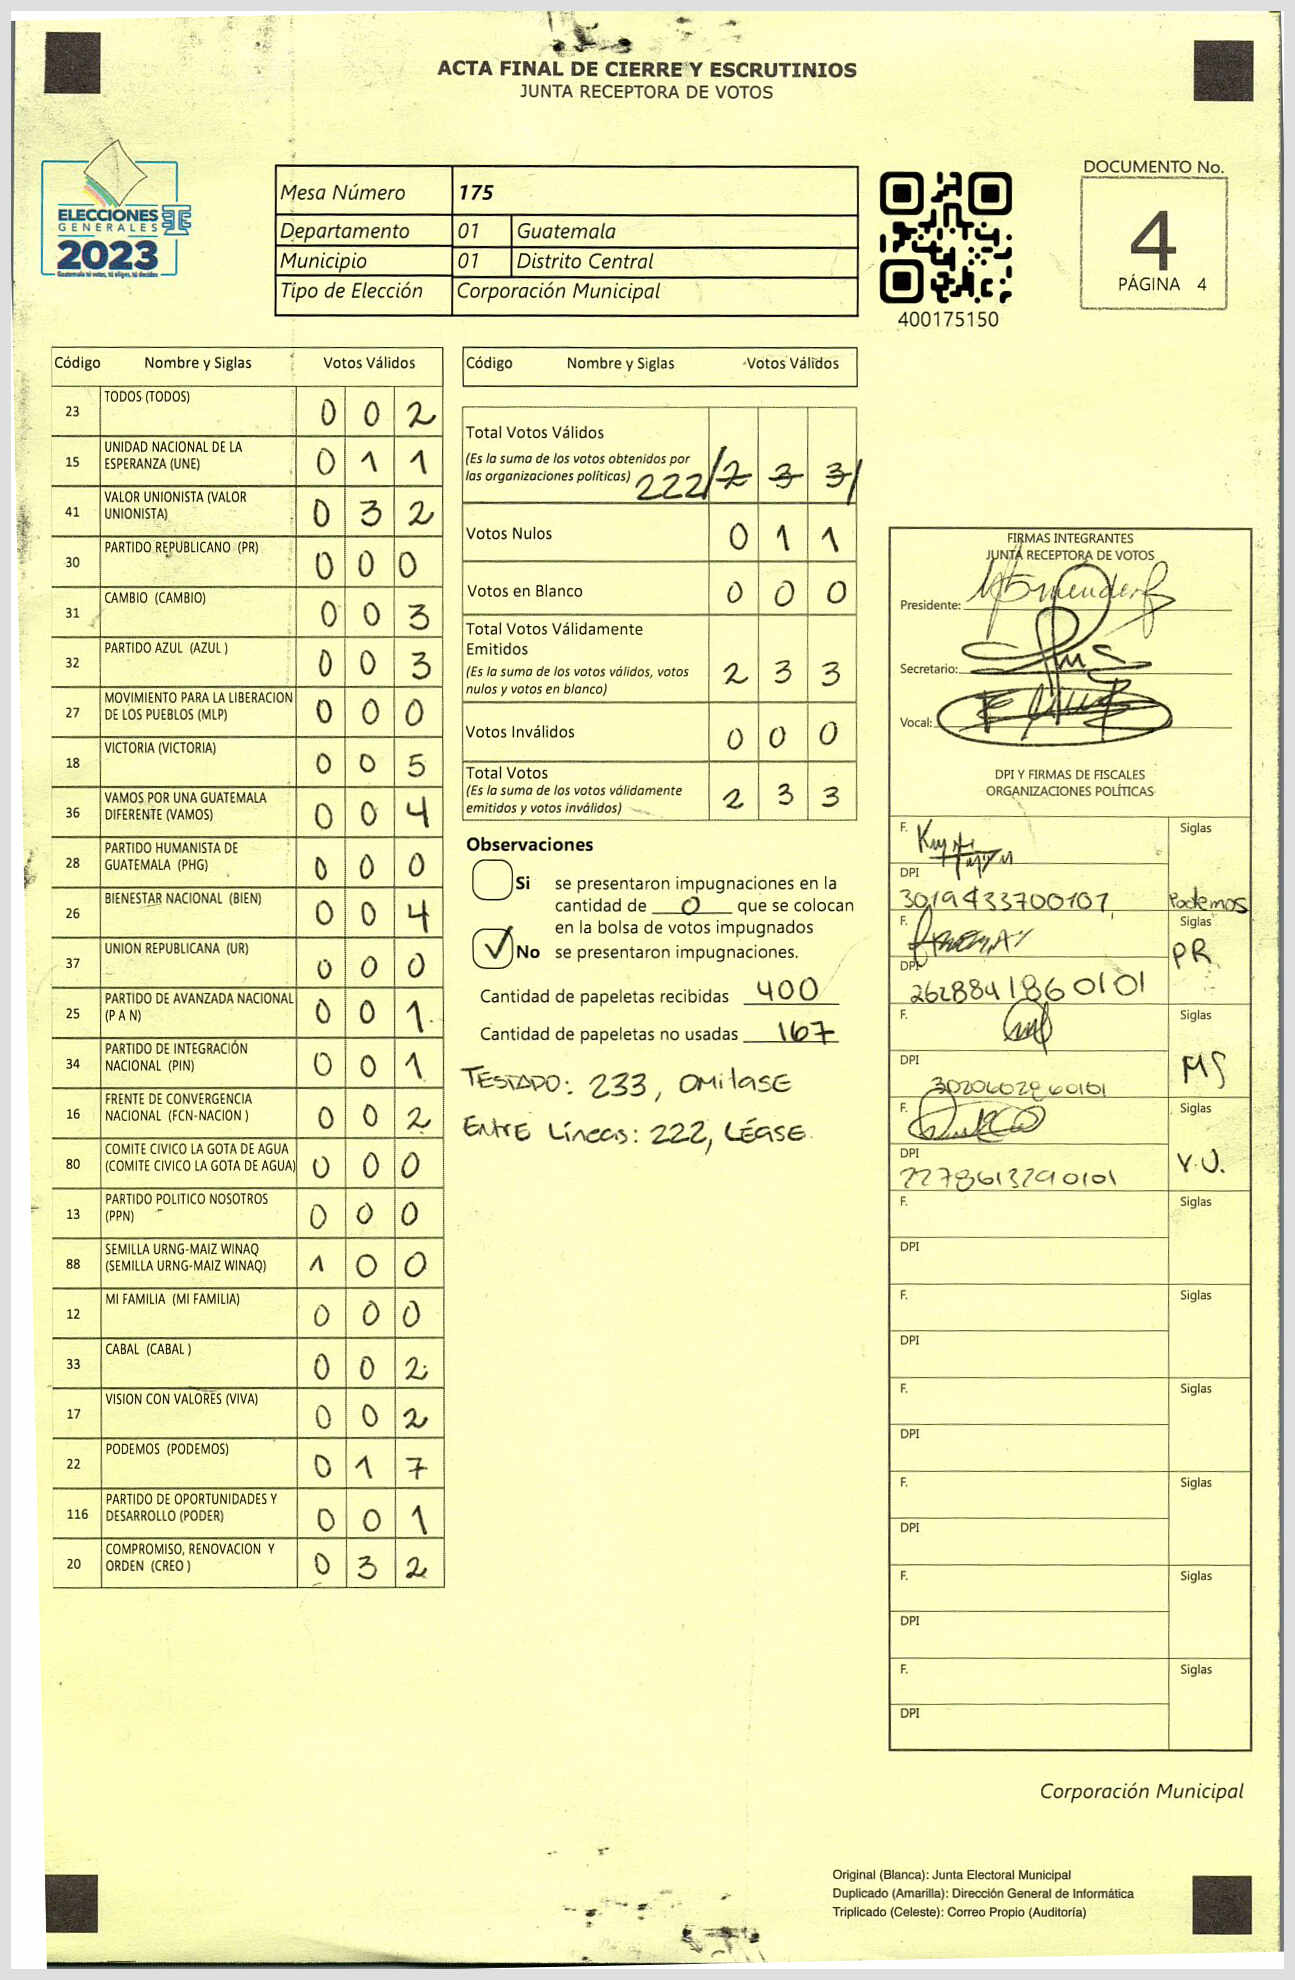 ACTA FINAL DE CIERRE Y ESCRUTINIOS
JUNTA RECEPTORA DE VOTOS
ELECCIONES
GENERALES
2023
Guatemala tú votas, tú eliges, tú decides
Mesa Número 175
Departamento 01 Guatemala
Municipio 01 Distrito Central
Tipo de Elección Corporación Municipal
400175150
DOCUMENTO No.
4
PÁGINA 4
Código Nombre y Siglas Votos Válidos
23 TODOS (TODOS) 0 0 2
15 UNIDAD NACIONAL DE LA
ESPERANZA (UNE) 0 1 1
41 VALOR UNIONISTA (VALOR
UNIONISTA) 0 3 2
30 PARTIDO REPUBLICANO (PR) 0 0 0
31 CAMBIO (CAMBIO) 0 0 3
32 PARTIDO AZUL (AZUL ) 0 0 3
27 MOVIMIENTO PARA LA LIBERACION
DE LOS PUEBLOS (MLP) 0 0 0
18 VICTORIA (VICTORIA) 0 0 5
36 VAMOS POR UNA GUATEMALA
DIFERENTE (VAMOS) 0 0 4
28 PARTIDO HUMANISTA DE
GUATEMALA (PHG) 0 0 0
26 BIENESTAR NACIONAL (BIEN) 0 0 4
37 UNION REPUBLICANA (UR) 0 0 0
25 PARTIDO DE AVANZADA NACIONAL
(P A N) 0 0 1
34 PARTIDO DE INTEGRACIÓN
NACIONAL (PIN) 0 0 1
16 FRENTE DE CONVERGENCIA
NACIONAL (FCN-NACION ) 0 0 2
80 COMITE CIVICO LA GOTA DE AGUA
(COMITE CIVICO LA GOTA DE AGUA) 0 0 0
13 PARTIDO POLITICO NOSOTROS
(PPN) 0 0 0
88 SEMILLA URNG-MAIZ WINAQ
(SEMILLA URNG-MAIZ WINAQ) 1 0 0
12 MI FAMILIA (MI FAMILIA) 0 0 0
33 CABAL (CABAL ) 0 0 2
17 VISION CON VALORES (VIVA) 0 0 2
22 PODEMOS (PODEMOS) 0 1 7
116 PARTIDO DE OPORTUNIDADES Y
DESARROLLO (PODER) 0 0 1
20 COMPROMISO, RENOVACION Y
ORDEN (CREO ) 0 3 2
Código Nombre y Siglas Votos Válidos
Total Votos Válidos
(Es la suma de los votos obtenidos por
las organizaciones políticas) 222/2 3 3/
Votos Nulos 0 1 1
Votos en Blanco 0 0 0
Total Votos Válidamente
Emitidos
(Es la suma de los votos válidos, votos
nulos y votos en blanco) 2 3 3
Votos Inválidos 0 0 0
Total Votos
(Es la suma de los votos válidamente
emitidos y votos inválidos) 2 3 3
Observaciones
Si se presentaron impugnaciones en la
cantidad de 0 que se colocan
en la bolsa de votos impugnados
No se presentaron impugnaciones.
Cantidad de papeletas recibidas 400
Cantidad de papeletas no usadas 167
TESTADO: 233, OMITASE
ENTRE Líneas: 222, LÉASE.
FIRMAS INTEGRANTES
JUNTA RECEPTORA DE VOTOS
Presidente:
Secretario:
Vocal:
DPI Y FIRMAS DE FISCALES
ORGANIZACIONES POLÍTICAS
F. Siglas
DPI
3019433700107 Podemos
F. Siglas
PR
DPI
2628841860101
F. Siglas
DPI MS
3020602860101
F. Siglas
DPI V.U.
2278613290101
F. Siglas
DPI
F. Siglas
DPI
F. Siglas
DPI
F. Siglas
DPI
F. Siglas
DPI
F. Siglas
DPI
Corporación Municipal
Original (Blanca): Junta Electoral Municipal
Duplicado (Amarilla): Dirección General de Informática
Triplicado (Celeste): Correo Propio (Auditoría)